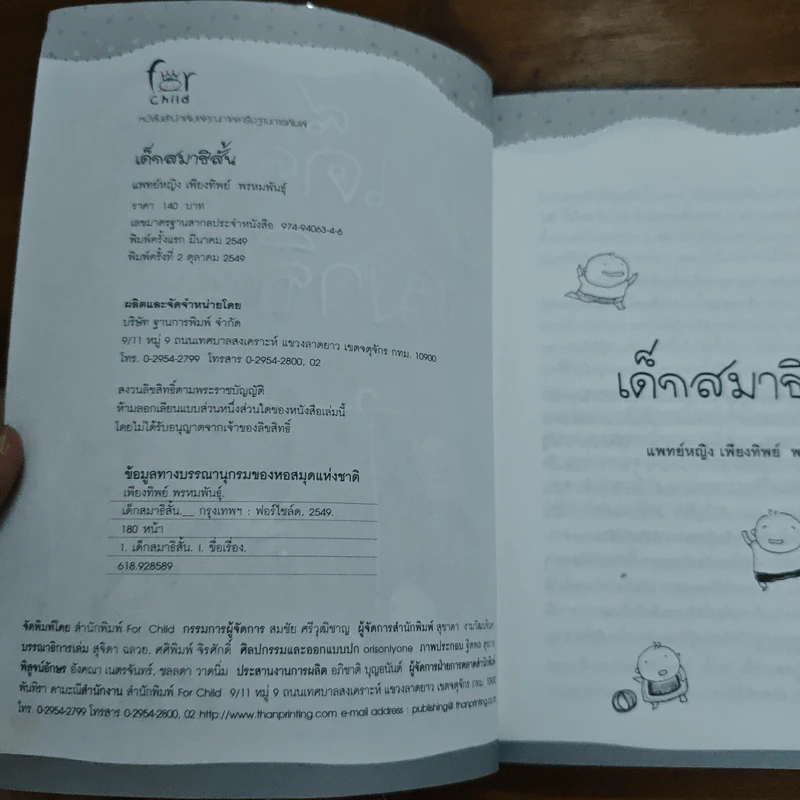 for
Child
เด็กสมาธิสั้น
แพทย์หญิง เพียงทิพย์ พรหมพันธุ์
ราคา 140 บาท
เลขมาตรฐานสากลประจำหนังสือ 974-94063-4-6
พิมพ์ครั้งแรก มีนาคม 2549
พิมพ์ครั้งที่ 2 ตุลาคม 2549
ผลิตและจัดจำหน่ายโดย
บริษัท ฐานการพิมพ์ จำกัด
9/11 หมู่ 9 ถนนเทศบาลสงเคราะห์ แขวงลาดยาว เขตจตุจักร กทม. 10900
โทร. 0-2954-2799 โทรสาร 0-2954-2800, 02
สงวนลิขสิทธิ์ตามพระราชบัญญัติ
ห้ามลอกเลียนแบบส่วนหนึ่งส่วนใดของหนังสือเล่มนี้
โดยไม่ได้รับอนุญาตจากเจ้าของลิขสิทธิ์
ข้อมูลทางบรรณานุกรมของหอสมุดแห่งชาติ
เพียงทิพย์ พรหมพันธุ์.
เด็กสมาธิสั้น.__ กรุงเทพฯ : ฟอร์ไชล์ด, 2549.
180 หน้า
1. เด็กสมาธิสั้น. I. ชื่อเรื่อง.
618.928589
จัดพิมพ์โดย สำนักพิมพ์ For Child กรรมการผู้จัดการ สมชัย ศรีวุฒิชาญ ผู้จัดการสำนักพิมพ์ สุชาดา
บรรณาธิการเล่ม สุจิดา ฉลวย, ศศิพิมพ์ จิรศักดิ์ ศิลปกรรมและออกแบบปก orisonlyone ภาพประกอบ
พิสูจน์อักษร อังคณา เนตรจันทร์, ชลลดา วาดนิ่ม ประสานงานการผลิต อภิชาติ บุญอนันต์ ผู้จัดการฝ่ายการตลาดสำนักพิมพ์
ทันทิรา ดามะณีสำนักงาน สำนักพิมพ์ For Child 9/11 หมู่ 9 ถนนเทศบาลสงเคราะห์ แขวงลาดยาว เขตจตุจักร กทม. 10900
โทร. 0-2954-2799 โทรสาร 0-2954-2800, 02 http://www.thanprinting.com e-mail address : publishing@thanprinting.co
เด็กสมาธิ
แพทย์หญิง เพียงทิพย์ พ